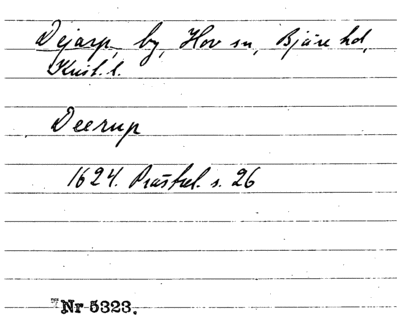 Dejarp, by, Hov sn, Bjäre hd,
Krist. l.
Deerup
1624. Prästrel. s. 26
Nr 5323.